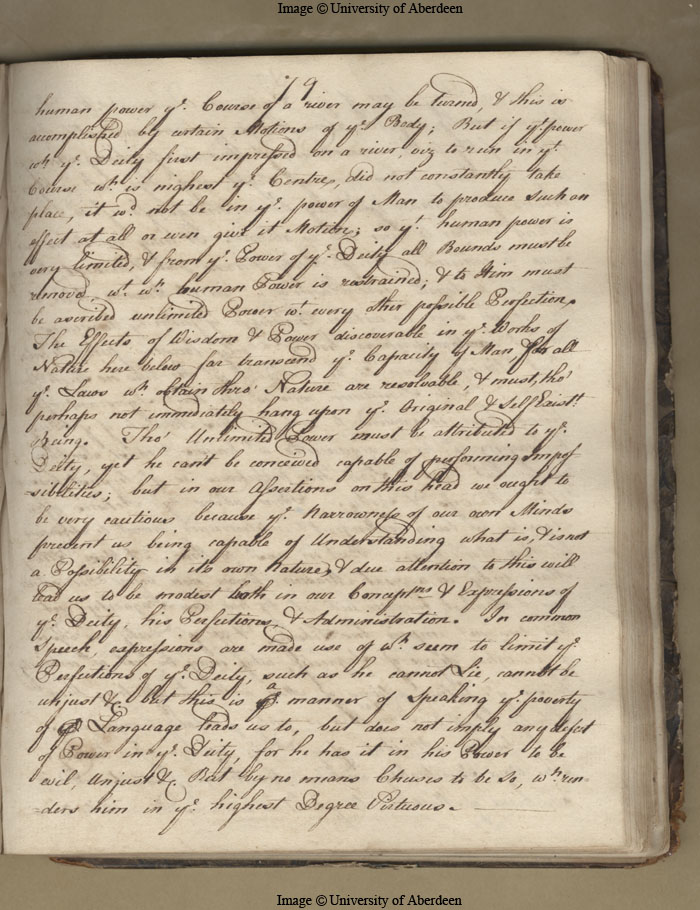 Image © University of Aberdeen
79
human power ye. Course of a river may be turned, & this is
accomplished by certain Motions of ye. Body; But if ye. power
wh ye. Deity first impressed on a river, viz to run in ye.
Course wh is nighest ye. Centre, did not constantly take
place, it wd. not be in ye. power of Man to produce such an
effect at all or even give it Motion; so yt. human power is
very limited, & from ye. Power of ye. Deity all Bounds must be
removed, wt. wh human Power is restrained; & to Him must
be ascribed unlimited Power wt. every other possible Perfection.
The Effects of Wisdom & Power discoverable in ye. Works of
Nature here below far transcend ye. Capacity of Man for all
ye. Laws wh obtain thro' Nature are resolvable, & must, tho'
perhaps not immediately hang upon ye. Original & Self Existt
Being. Tho' Unlimited Power must be attributed to ye.
Deity, yet he can't be conceived capable of performing Impos
-sibilities; but in our Assertions on this head we ought to
be very cautious because ye. Narrowness of our own Minds
prevent us being capable of Understanding what is, & is not
a Possibility in its own Nature, & due attention to this will
lead us to be modest both in our Conceptns & Expressions of
ye. Deity, his Perfections, & Administration. In common
Speech, expressions are made use of wh seem to limit ye.
Perfections of ye. Deity, such as he cannot Lie, cannot be
unjust &c. but this is a manner of speaking ye. poverty
of Language leads us to, but does not imply any defect
of Power in ye. Deity, for he has it in his Power to be
evil, Unjust &c. But by no means Chuses to be so, wh ren
-ders him in ye. highest Degree Virtuous.
Image © University of Aberdeen